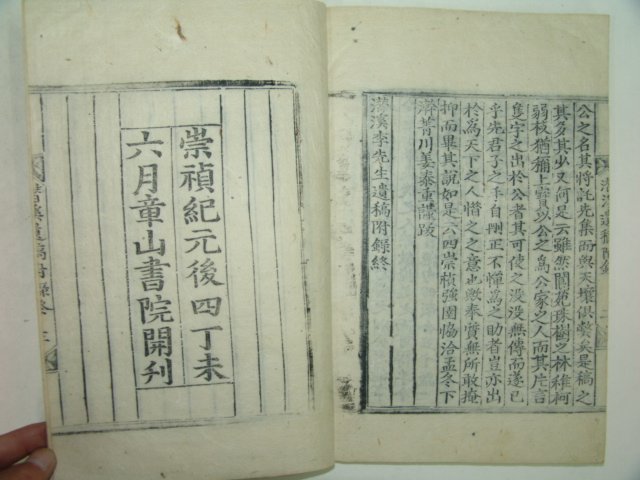 公之名其將託先集而與天壤俱弊矣是稿之
其多其少又何足云雖然閬苑珠樹之林稚柯
弱枝猶稱上寶以公之爲公家之人而其片言
隻字之出於公者其可使之沒沒無傳而遂已
乎先君子之手自刪正不憚爲之助者豈亦出
於爲天下之人惜之之意也歟奉質無所敢掩
抑而畢其說如是云四崇禎強圉協洽孟冬下
澣菁川姜泰重謹跋
溪李先生遺稿附錄終
崇禎紀元後四丁未
六月章山書院開刋